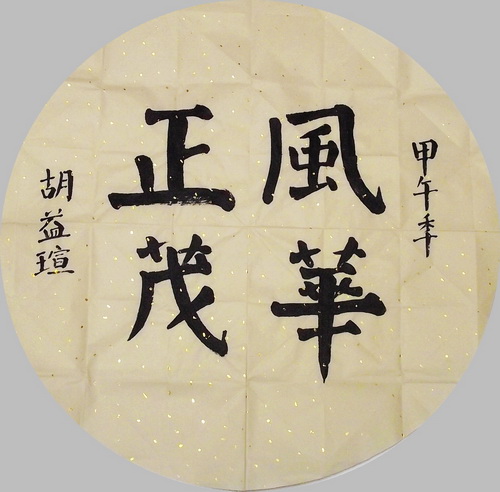 甲午季
風華
正茂
胡益瑄